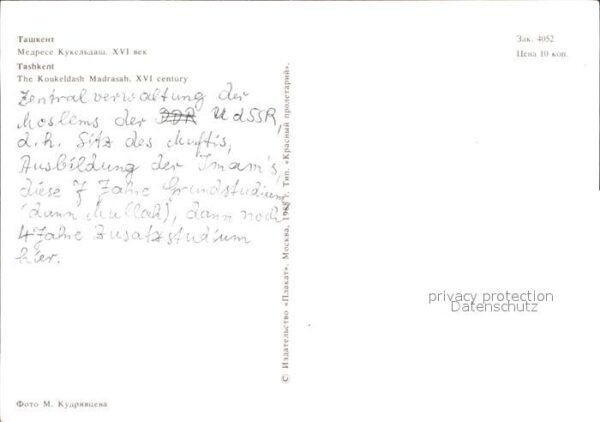 Ташкент
Медресе Кукельдаш. XVI век
Tashkent
The Koukeldash Madrasah. XVI century
Зак. 4052
Цена 10 коп.
Zentralverwaltung der
Moslems der DDR UdSSR,
d.h. Sitz des Muftis,
Ausbildung der Imam's,
diese 7 Jahre Grundstudium
(dann Mullah), dann noch
4 Jahre Zusatzstudium
hier.
© Издательство «Плакат». Москва, г. Тип. «Красный пролетарий».
privacy protection
Datenschutz
Фото М. Кудрявцева